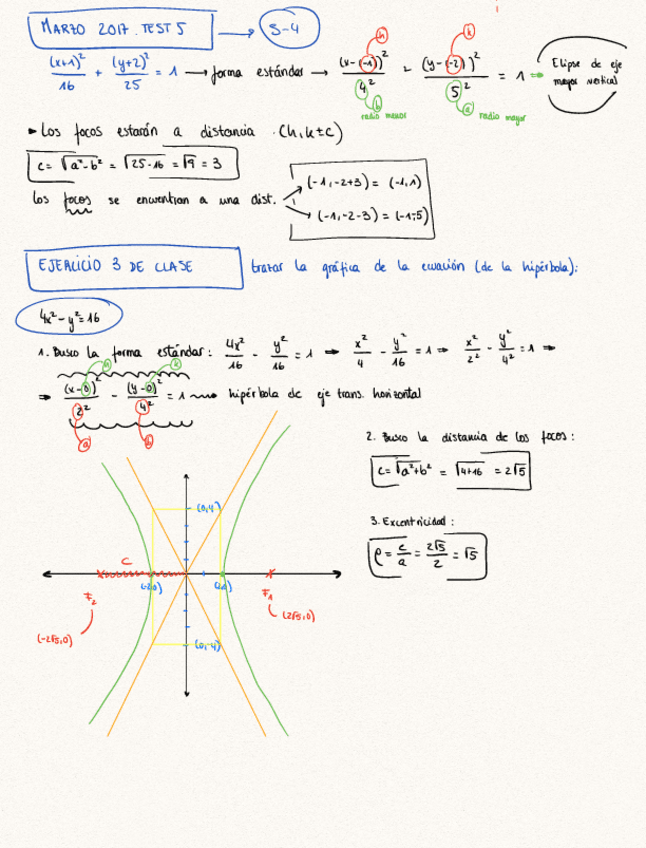 MARZO 2017. TEST 5 → S-4
(x+1)²/16 + (y+2)²/25 = 1 → forma estándar → (x-(-1))²/4² - (y-(-2))²/5² = 1 ⇒ Elipse de eje mayor vertical
h k
b radio menor a radio mayor
► Los focos estarán a distancia (h, k±c)
c = √a²-b² = √25-16 = √9 = 3
(-1, -2+3) = (-1, 1)
Los focos se encuentran a una dist.
(-1, -2-3) = (-1, -5)
EJERCICIO 3 DE CLASE trazar la gráfica de la ecuación (de la hipérbola):
4x² - y² = 16
1. Busco la forma estándar: 4x²/16 - y²/16 = 1 ⇒ x²/4 - y²/16 = 1 ⇒ x²/2² - y²/4² = 1 ⇒
h k
⇒ (x-0)²/2² - (y-0)²/4² = 1 → hipérbola de eje trans. horizontal
a b
2. Busco la distancia de los focos:
c = √a²+b² = √4+16 = 2√5
3. Excentricidad:
e = c/a = 2√5/2 = √5
(0,4)
C
(-2,0)
F₂
F₁
(-2√5,0)
(2√5,0)
(0,-4)